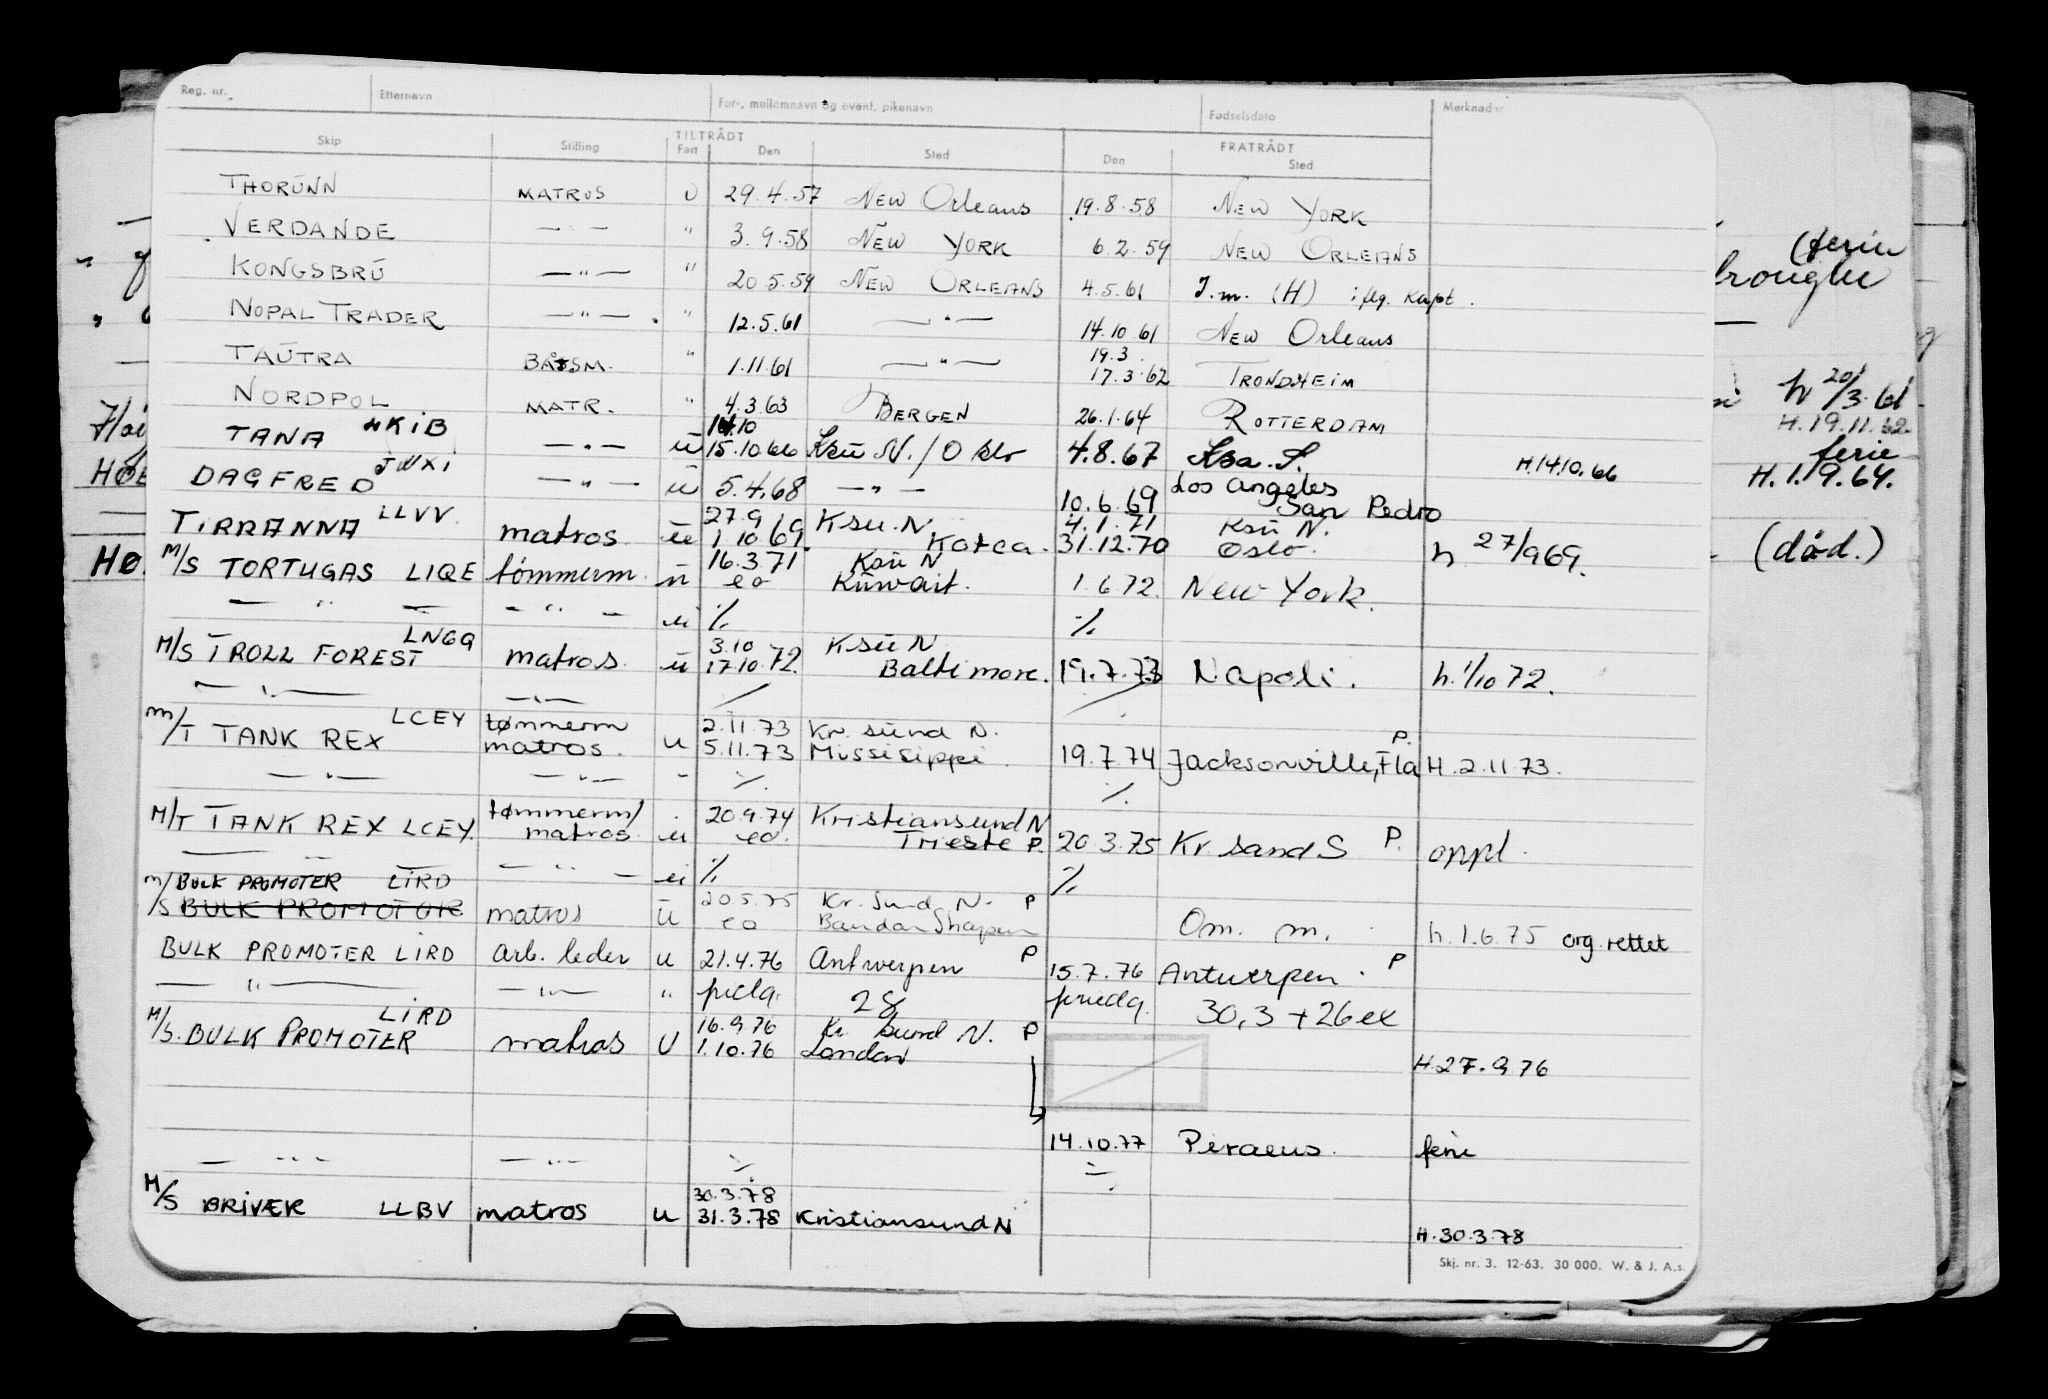 Reg. nr. Etternavn For-, mellomnavn og event. pikenavn Fødselsdato Merknader
TILTRÅDT FRATRÅDT
Skip Stilling Fart Den Sted Den Sted
THORUNN MATROS U 29.4.57 NEW Orleans 19.8.58 NEW YORK
VERDANDE — " — " 3.9.58 NEW YORK 6.2.59 NEW ORLEANS
KONGSBRU — " — " 20.5.59 NEW ORLEANS 4.5.61 I.m. (H) iflg. Kapt.
NOPAL TRADER — " — " 12.5.61 — " — 14.10.61 NEW Orleans
19.3.
TAUTRA BÅTSM. " 1.11.61 — " — 17.3.62 TRONDHEIM
NORDPOL MATR. " 4.3.63 BERGEN 26.1.64 ROTTERDAM
14.10
TANA HKIB — " — u 15.10.66 Ksu N. / Oslo 4.8.67 Ksa. S. H.14.10.66
DAGFRED JWXI — " — u 5.4.68 — " — 10.6.69 Los Angeles San Pedro
27.9 Ksu. N. 4.1.71 Ksu N.
TIRRANNA LLVV matros u 1.10.69. Korea. 31.12.70 Oslo. h 27/9 69.
16.3.71 Ksu N
M/S TORTUGAS LIQE tømmerm. u eo Kuwait. 1.6.72. New York.
— " — — " — u %. %.
LNGQ 3.10 Ksu N
M/S TROLL FOREST matros u 17.10.72. Baltimore. 19.7.73 Napoli. h. 1/10 72.
— " — — " —
LCEY tømmerm 2.11.73 Kr. sund N.
M/T TANK REX matros. u 5.11.73 Missisippi. 19.7.74 Jacksonville, Fla P. H. 2.11.73.
— " — — " — - %. %.
tømmerm/ 20.9.74 Kristiansund N
M/T TANK REX LCEY. matros u eo. Trieste P. 20.3.75 Kr. sand S P. oppl.
— " — — " — u %. %.
BULK PROMOTER LIRD 20.5.75 Kr. Sund N. P
M/S BULK PROMOTOR matros u eo Bandar Shapur Om. m. h. 1.6.75 org. rettet
BULK PROMOTER LIRD arb. leder u 21.4.76 Antwerpen P 15.7.76 Antwerpen. P
— " — — " — " 28 30,3 + 26 ex
LIRD 16.9.76 Kr. Sund N. P
M/S. BULK PROMOTER matros U 1.10.76 London
H.27.9.76
14.10.77 Piraeus. ferie
— " — — " — %. %.
30.3.78
M/S BRIVÆR LLBV matros u 31.3.78 Kristiansund N
H.30.3.78
Skj. nr. 3. 12-63. 30 000. W. & J. A.s.
(ferie
h 20/3.61
H.19.11.62
ferie
H.1.9.64.
(død.)